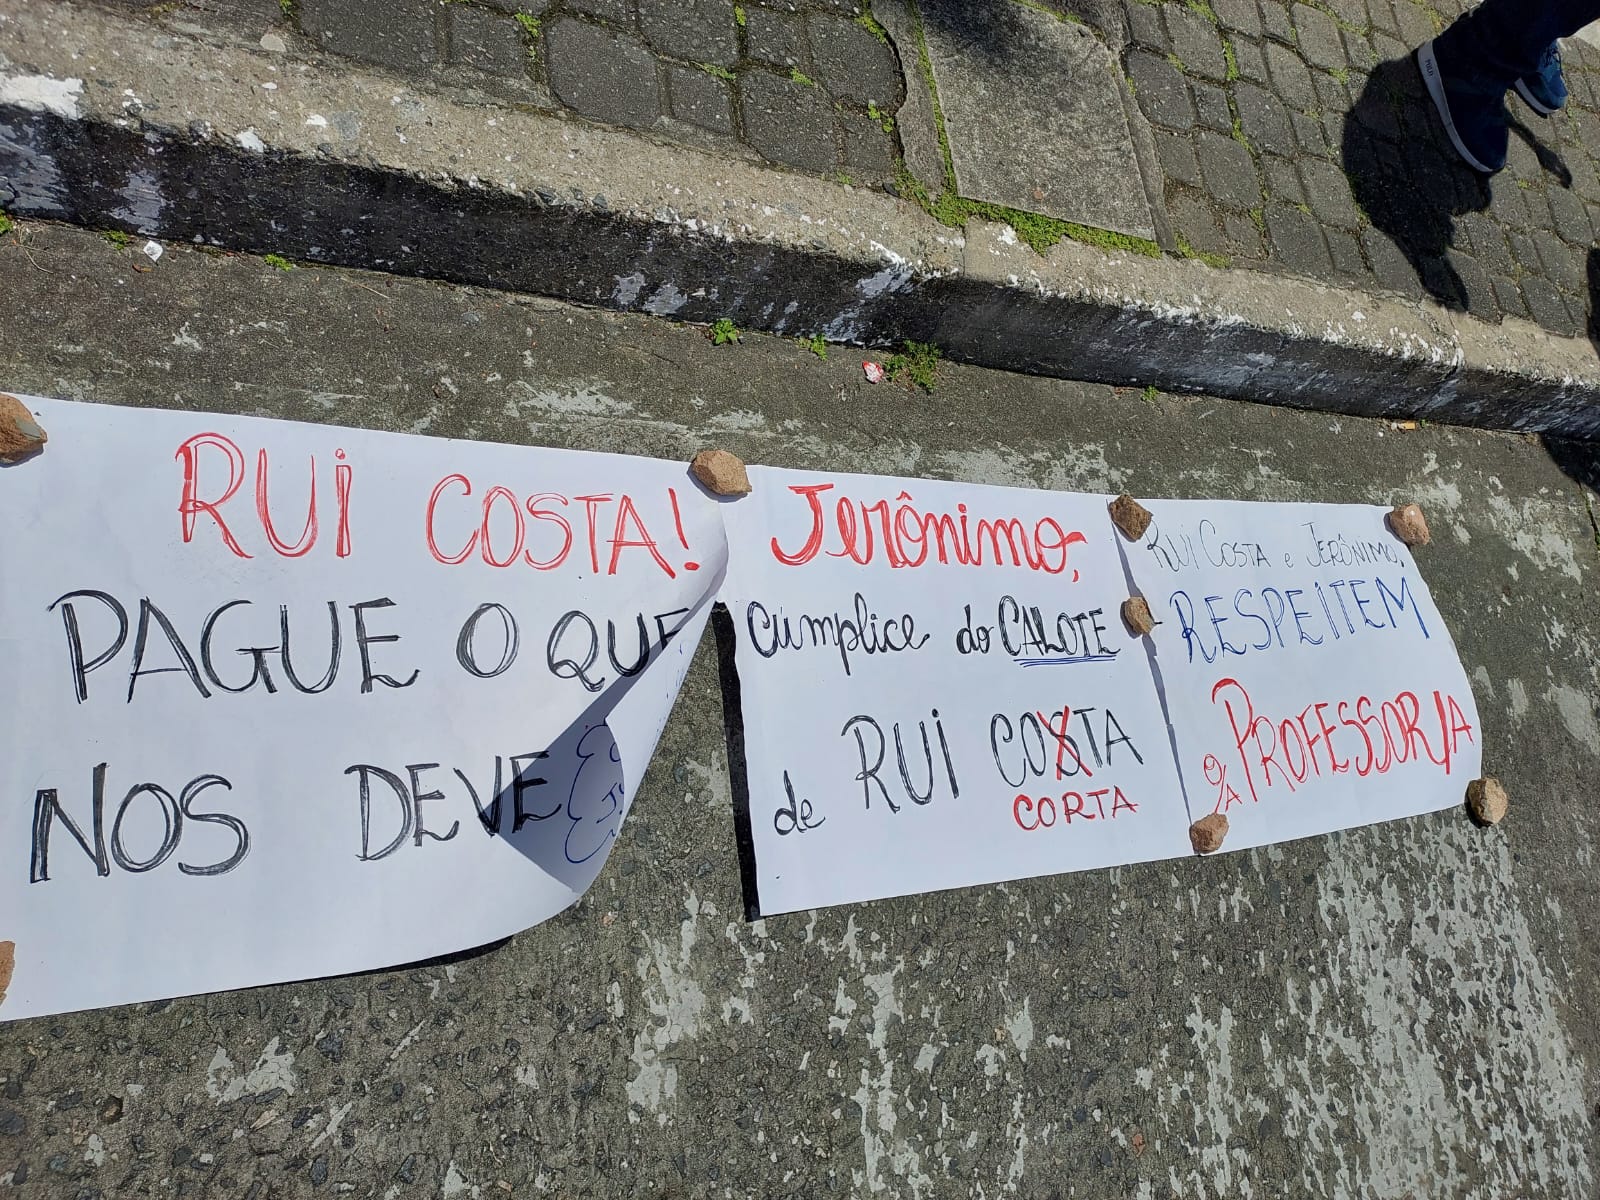 RUI COSTA!
PAGUE O QUE
NOS DEVE
Jerônimo,
Cúmplice do CALOTE
de RUI COSTA
CORTA
RUI COSTA e JERÔNIMO,
RESPEITEM
O/A PROFESSOR/A
POLO